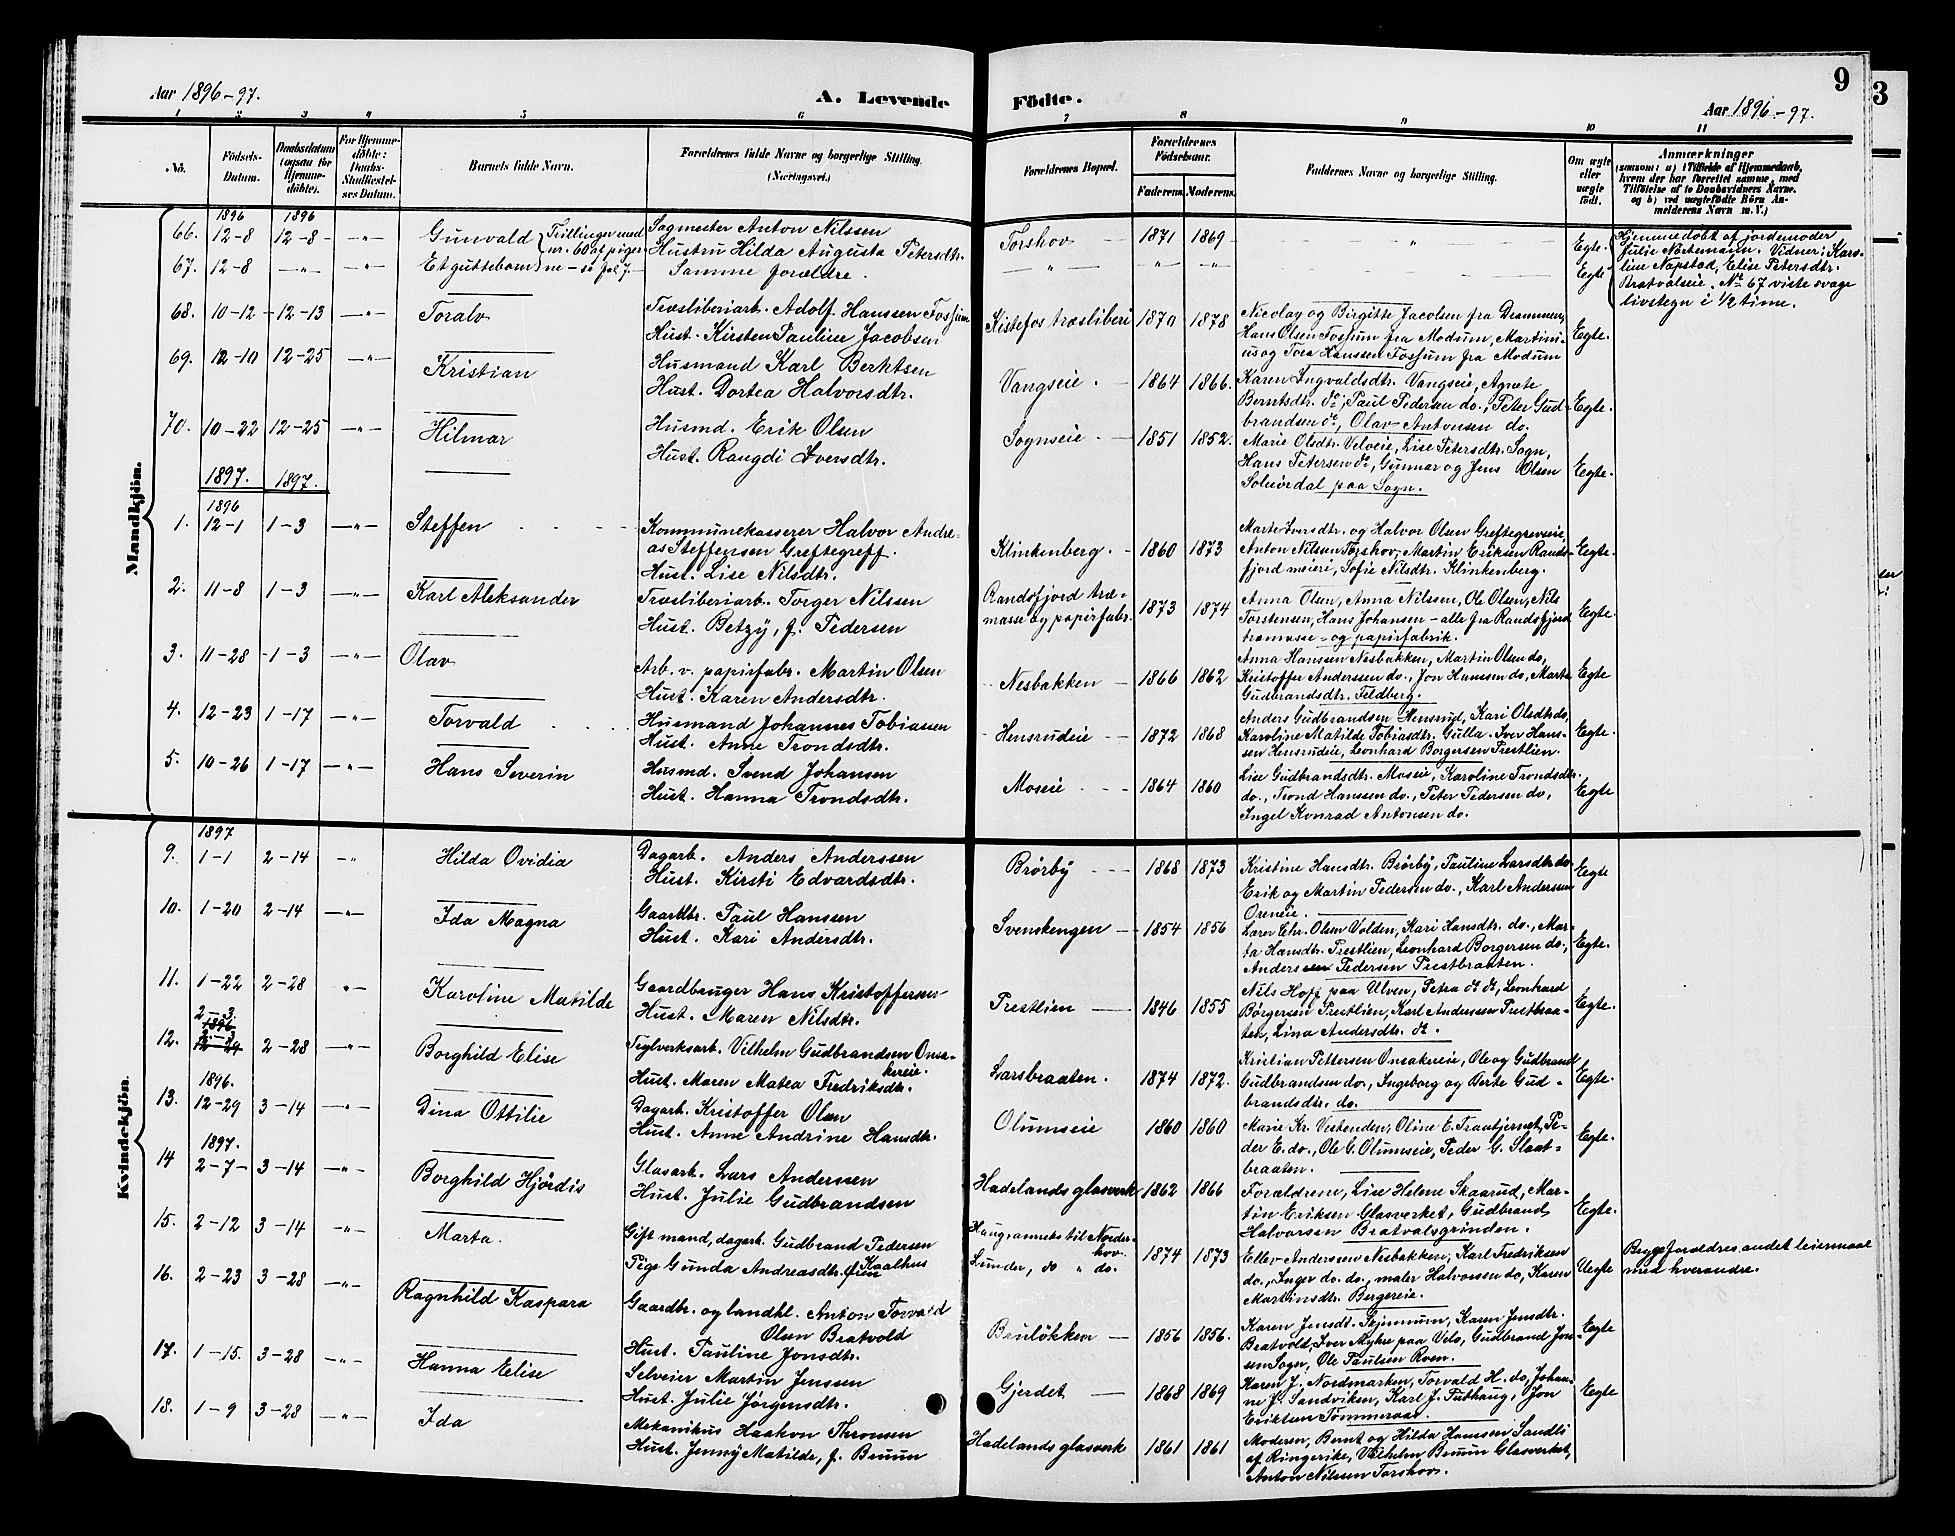 9
3
Aar 1896-97.
A. Levende
Födte.
Aar 1896-97.
1 2 3 4 5 6 7 8 9 10 11
No.
Födsels-Datum.
Daabsdatum (ogsaa for Hjemmedöbte).
For Hjemmedöbte: Daabs-Stadfæstelses Datum.
Barnets fulde Navn.
Forældrenes fulde Navne og borgerlige Stilling. (Næringsvei.)
Forældrenes Bopæl.
Forældrenes Födselsaar.
Faderens. Moderens.
Faddernes Navne og borgerlige Stilling.
Om ægte eller uægte födt.
Anmærkninger
(saasom: a) i Tilfælde af Hjemmedaab, hvem der har forrettet samme, med Tilföielse af to Daabsvidners Navne, og b) ved uægtefödte Börn Anmelderens Navn m. V.)
Mandkjön.
1896 1896
66. 12-8 12-8 -"- Gunvald Trillinger med Sagmester Anton Nilssen
nr. 60 af piger- Hustru Hilda Augusta Petersdtr. Torshov 1871 1869 " Egte. Hjemmedöbt af jordemoder
67. 12-8 -"- -"- Et guttebarn ne - se fol 7- Samme forældre. " " " Egte Julie Northmann. Vidner: Karo-
line Napstad, Elise Petersdtr.
Bratvalseie. No 67 viste svage
livstegn i 1/2 time.
68. 10-12 12-13 -"- Toralv Træsliberiarb. Adolf Hanssen Fossum Kistefos træsliberi 1870 1878 Nicolay og Birgitte Jacobsen fra Drammen,
Hust. Kirsten Pauline Jacobsen Hans Olsen Fossum fra Modum, Martini- Egte.
us og Tora Hanssen Fossum fra Modum
69. 12-10 12-25 -"- Kristian Husmand Karl Berntsen Vangseie. 1864 1866. Karen Ingvaldsdtr. Vangseie, Agnete
Hust. Dortea Halvorsdtr. Berntsdtr. do; Paul Pedersen do., Peter Gud- Egte.
brandsen do, Olav Antonsen do.
70. 10-22 12-25 -"- Hilmar Husmd. Erik Olsen Sognseie 1851 1852. Marie Olsdtr. Velseie, Lise Petersdtr. Sogn,
Hust. Rangdi Iversdtr. Hans Petersen do, Gunnar og Jens Olsen Egte.
Solverdal paa Sogn.
1897. 1897.
1896
1. 12-1 1-3 -"- Steffen Kommunekasserer Halvor Andre-
as Steffensen Greftegreff. Klinkenberg. 1860 1873 Marte Iversdtr. og Halvor Olsen Greftegrevseie
Hust. Lise Nilsdtr. Anton Nilsen Torshov, Martin Eriksen Rands- Egte.
fjord meieri, Sofie Nilsdtr. Klinkenberg.
2. 11-8 1-3 -"- Karl Aleksander Træsliberiarb. Torger Nilssen Randsfjord træ-
Hust. Betzy, f. Pedersen masse og papirfabr. 1873 1874 Anna Olsen, Anna Nilssen, Ole Olsen, Nils
Torstensen, Hans Johansen - alle fra Randsfjord Egte.
træmasse- og papirfabrik.
3. 11-28 1-3 -"- Olav Arb. v. papirfabr. Martin Olsen Nesbakken 1866 1862 Anna Hanssen Nesbakken, Martin Olsen do,
Hust. Karen Andersdtr. Kristoffer Anderssen do., Jon Hanssen do, Marta Egte
Gudbrandsdtr. Feldberg.
4. 12-23 1-17 -"- Torvald Husmand Johannes Tobiassen Hensrudeie 1872 1868 Anders Gudbrandsen Hensrud, Kari Olsdtr do,
Hust. Anne Trondsdtr. Karoline Matilde Tobiasdtr. Gulla. Iver Hans- Egte.
sen Hensrudeie, Leonhard Borgersen Prestlien.
5. 10-26 1-17 -"- Hans Severin Husmd. Svend Johansen Moseie 1864 1860 Lise Gudbrandsdtr. Moseie, Karoline Trondsdtr.
Hust. Hanna Trondsdtr. do., Trond Hanssen do., Peter Pedersen do, Egte
Ingel Konrad Antonsen do.
Kvindekjön.
1897
9. 1-1 2-14 -"- Hilda Ovidia Dagarb. Anders Anderssen Brørby 1868 1873 Kristine Hansdtr. Brørby, Pauline Larsdtr do. Egte
Hust. Kirsti Edvardsdtr. Erik og Martin Pedersen do., Karl Andersen
Oreneie.
10. 1-20 2-14 -"- Ida Magna Gaardbr. Paul Hanssen Svenskengen 1854 1856 Lars Chr. Olsen Volden, Kari Hansdtr. do., Mar-
Hust. Kari Andersdtr. ta Hansdtr. Prestlien, Leonhard Borgersen do, Egte.
Anders Pedersen Prestbraaten.
11. 1-22 2-28 " Karoline Matilde Gaardbruger Hans Kristoffersen Prestlien 1846 1855 Nils Hoff paa Ulven, Petra do do, Leonhard
Hust. Maren Nilsdtr. Borgersen Prestlien, Karl Anderssen Prestbraa- Egte.
ten, Lina Andersdtr. do.
2-3.
1896
12. 12-24 2-28 -"- Borghild Elise Teglverksarb. Vilhelm Gudbrandsen Onsa-
kereie. Larsbraaten. 1874 1872. Kristian Pettersen Onsakereie, Ole og Gudbrand
Hust. Maren Matea Fredriksdtr. Gudbrandsen do., Ingeborg og Berte Gud- Egte.
brandsdtr. do.
1896.
13. 12-29 3-14 -"- Dina Ottilie Dagarb. Kristoffer Olsen Olumseie 1860 1860 Marie Kr. Vestenden, Oline E. Traatjernet, Pe-
Hust. Anne Andrine Hansdtr. der E. do., Ole G. Olumseie, Peder G. Slaat- Egte.
braaten.
1897.
14 2-7- 3-14 -"- Borghild Hjördis Glasarb. Lars Anderssen Hadelands glasverk 1862 1866 Forældrene, Lise Helene Skaarud, Mar-
Hust. Julie Gudbrandsen tin Eriksen Glasverket, Gudbrand Egte.
Halvorsen Bratvalsgrinden.
15. 2-12 3-14 -"- Marta. Gift mand, dagarb. Gudbrand Pedersen Haugsannekstil Norder-
hov. 1874 1873 Ellev Andersen Nesbakken, Karl Fredriksen
Pige Gunda Andreasdtr. Kaalhus Lunder, do " do. do., Inger do. do., maler Halvorsen do, Karen Uegte Begge forældres andet leiermaal
Martinsdtr. Bergereie. med hverandre.
16. 2-23 3-28 -"- Ragnhild Kaspara Gaardbr. og landhl. Anton Torvald
Olsen Bratvold Bruløkken 1856 1856. Karen Jensdt. Skjennum, Karen Jensdtr.
Hust. Pauline Jonsdtr. Bratvold, Iver Myhre paa Velo, Gudbrand Jon- Egte
sen Sogn, Ole Paulsen Roen.
17. 1-15. 3-28 -"- Hanna Elise Selveier Martin Jenssen Gjerdet 1868 1869 Karen J. Nordmarken, Torvald H. do, Johan-
Hust. Julie Jørgensdtr. ne J. Sandviken, Karl J. Tuthaug, Jon Egte
Eriksen Tømmeraas.
18. 1-9 3-28 -"- Ida Mekanikus Haakon Thronsen Hadelands glasverk 1861 1861 Moderen, Bernt og Hilda Hanssen Sandli
Hust. Jenny Matilde, f. Bruun af Ringerike, Vilhelm Bruun Glasverket,
Anton Nilssen Torshov.